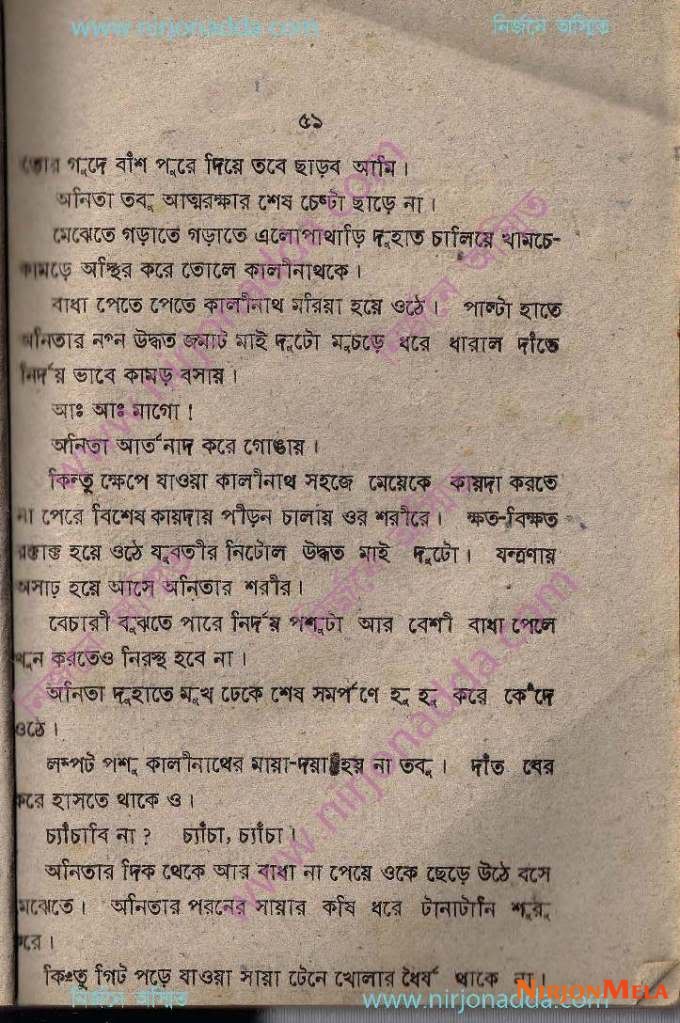 www.nirjonadda.com নির্জনে অস্মিত
৫১
তোর গুদে বাঁশ পুরে দিয়ে তবে ছাড়ব আমি।
অনিতা তবু আত্মরক্ষার শেষ চেষ্টা ছাড়ে না।
মেঝেতে গড়াতে গড়াতে এলোপাথাড়ি দুহাত চালিয়ে খামচে-
কামড়ে অস্থির করে তোলে কালীনাথকে।
বাধা পেতে পেতে কালীনাথ মরিয়া হয়ে ওঠে। পাল্টা হাতে
অনিতার নগ্ন উদ্ধত জমাট মাই দুটো মুচড়ে ধরে ধারাল দাঁতে
নির্দয় ভাবে কামড় বসায়।
আঃ আঃ মাগো!
অনিতা আর্তনাদ করে গোঙায়।
কিন্তু ক্ষেপে যাওয়া কালীনাথ সহজে মেয়েকে কায়দা করতে
না পেরে বিশেষ কায়দায় পীড়ন চালায় ওর শরীরে। ক্ষত-বিক্ষত
রক্তাক্ত হয়ে ওঠে যুবতীর নিটোল উদ্ধত মাই দুটো। যন্ত্রণায়
অসাঢ় হয়ে আসে অনিতার শরীর।
বেচারী বুঝতে পারে নির্দয় পশুটা আর বেশী বাধা পেলে
খুন করতেও নিরস্থ হবে না।
অনিতা দুহাতে মুখ ঢেকে শেষ সমর্পণে হু হু করে কেঁদে
ওঠে।
লম্পট পশু কালীনাথের মায়া-দয়া হয় না তবু। দাঁত বের
করে হাসতে থাকে ও।
চ্যাঁচাবি না? চ্যাঁচা, চ্যাঁচা।
অনিতার দিক থেকে আর বাধা না পেয়ে ওকে ছেড়ে উঠে বসে
মেঝেতে। অনিতার পরনের সায়ার কষি ধরে টানাটানি শুরু
করে।
কিন্তু গিট পড়ে যাওয়া সায়া টেনে খোলার ধৈর্য থাকে না।
নির্জনে অস্মিত www.nirjonadda.com NIRJONMELA